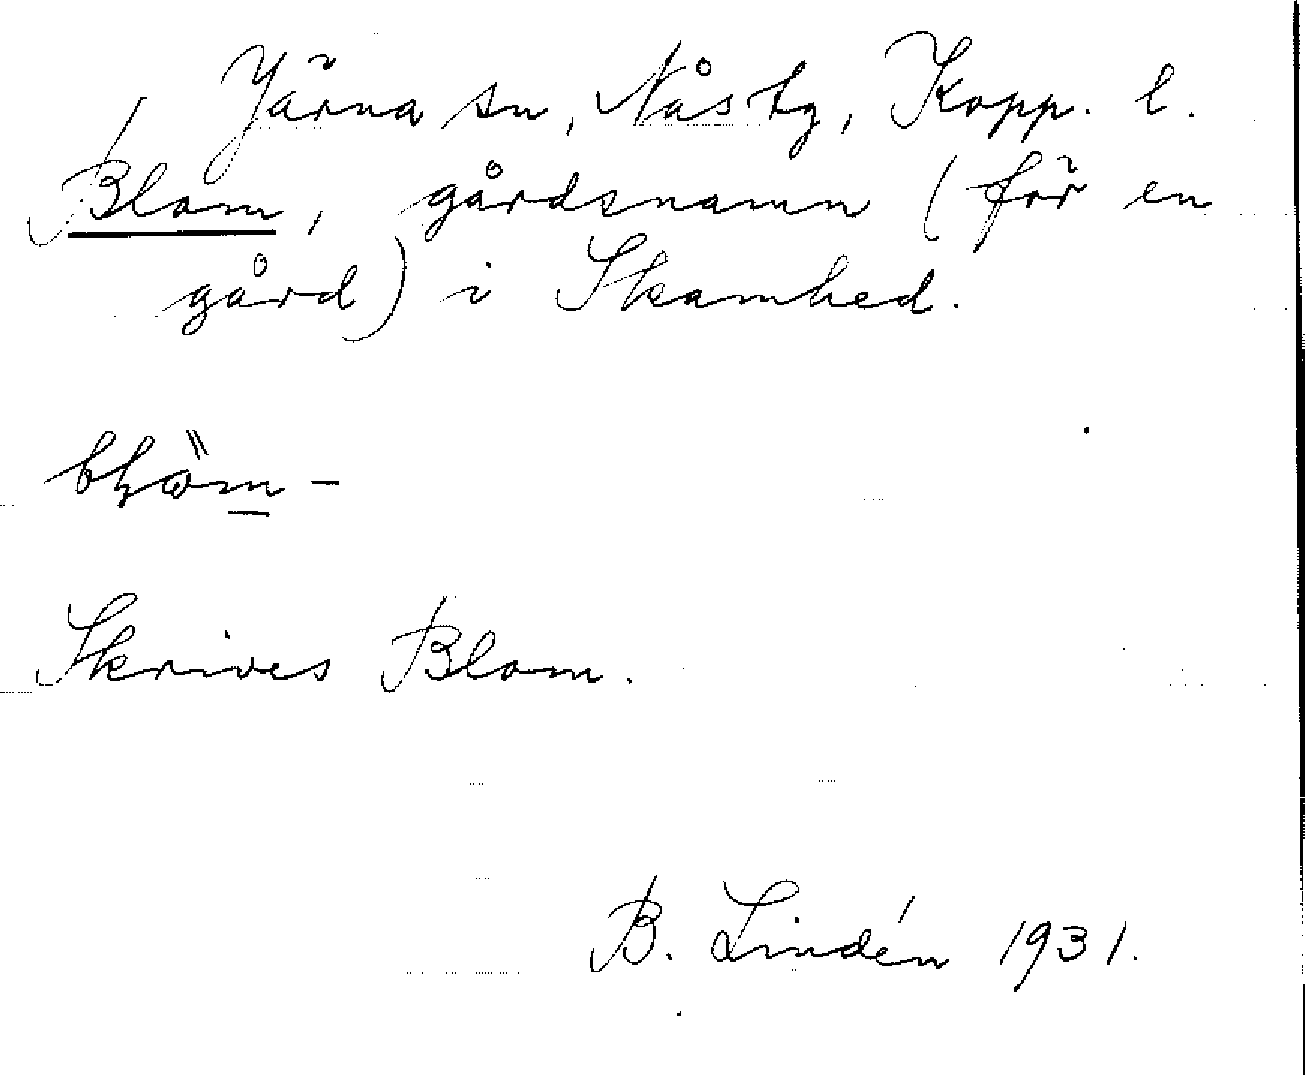 Järna sn, Nås tg, Kopp. l.
Blom, gårdsnamn (för en
gård) i Skamhed.
Skrives Blom.
B. Lindén 1931.